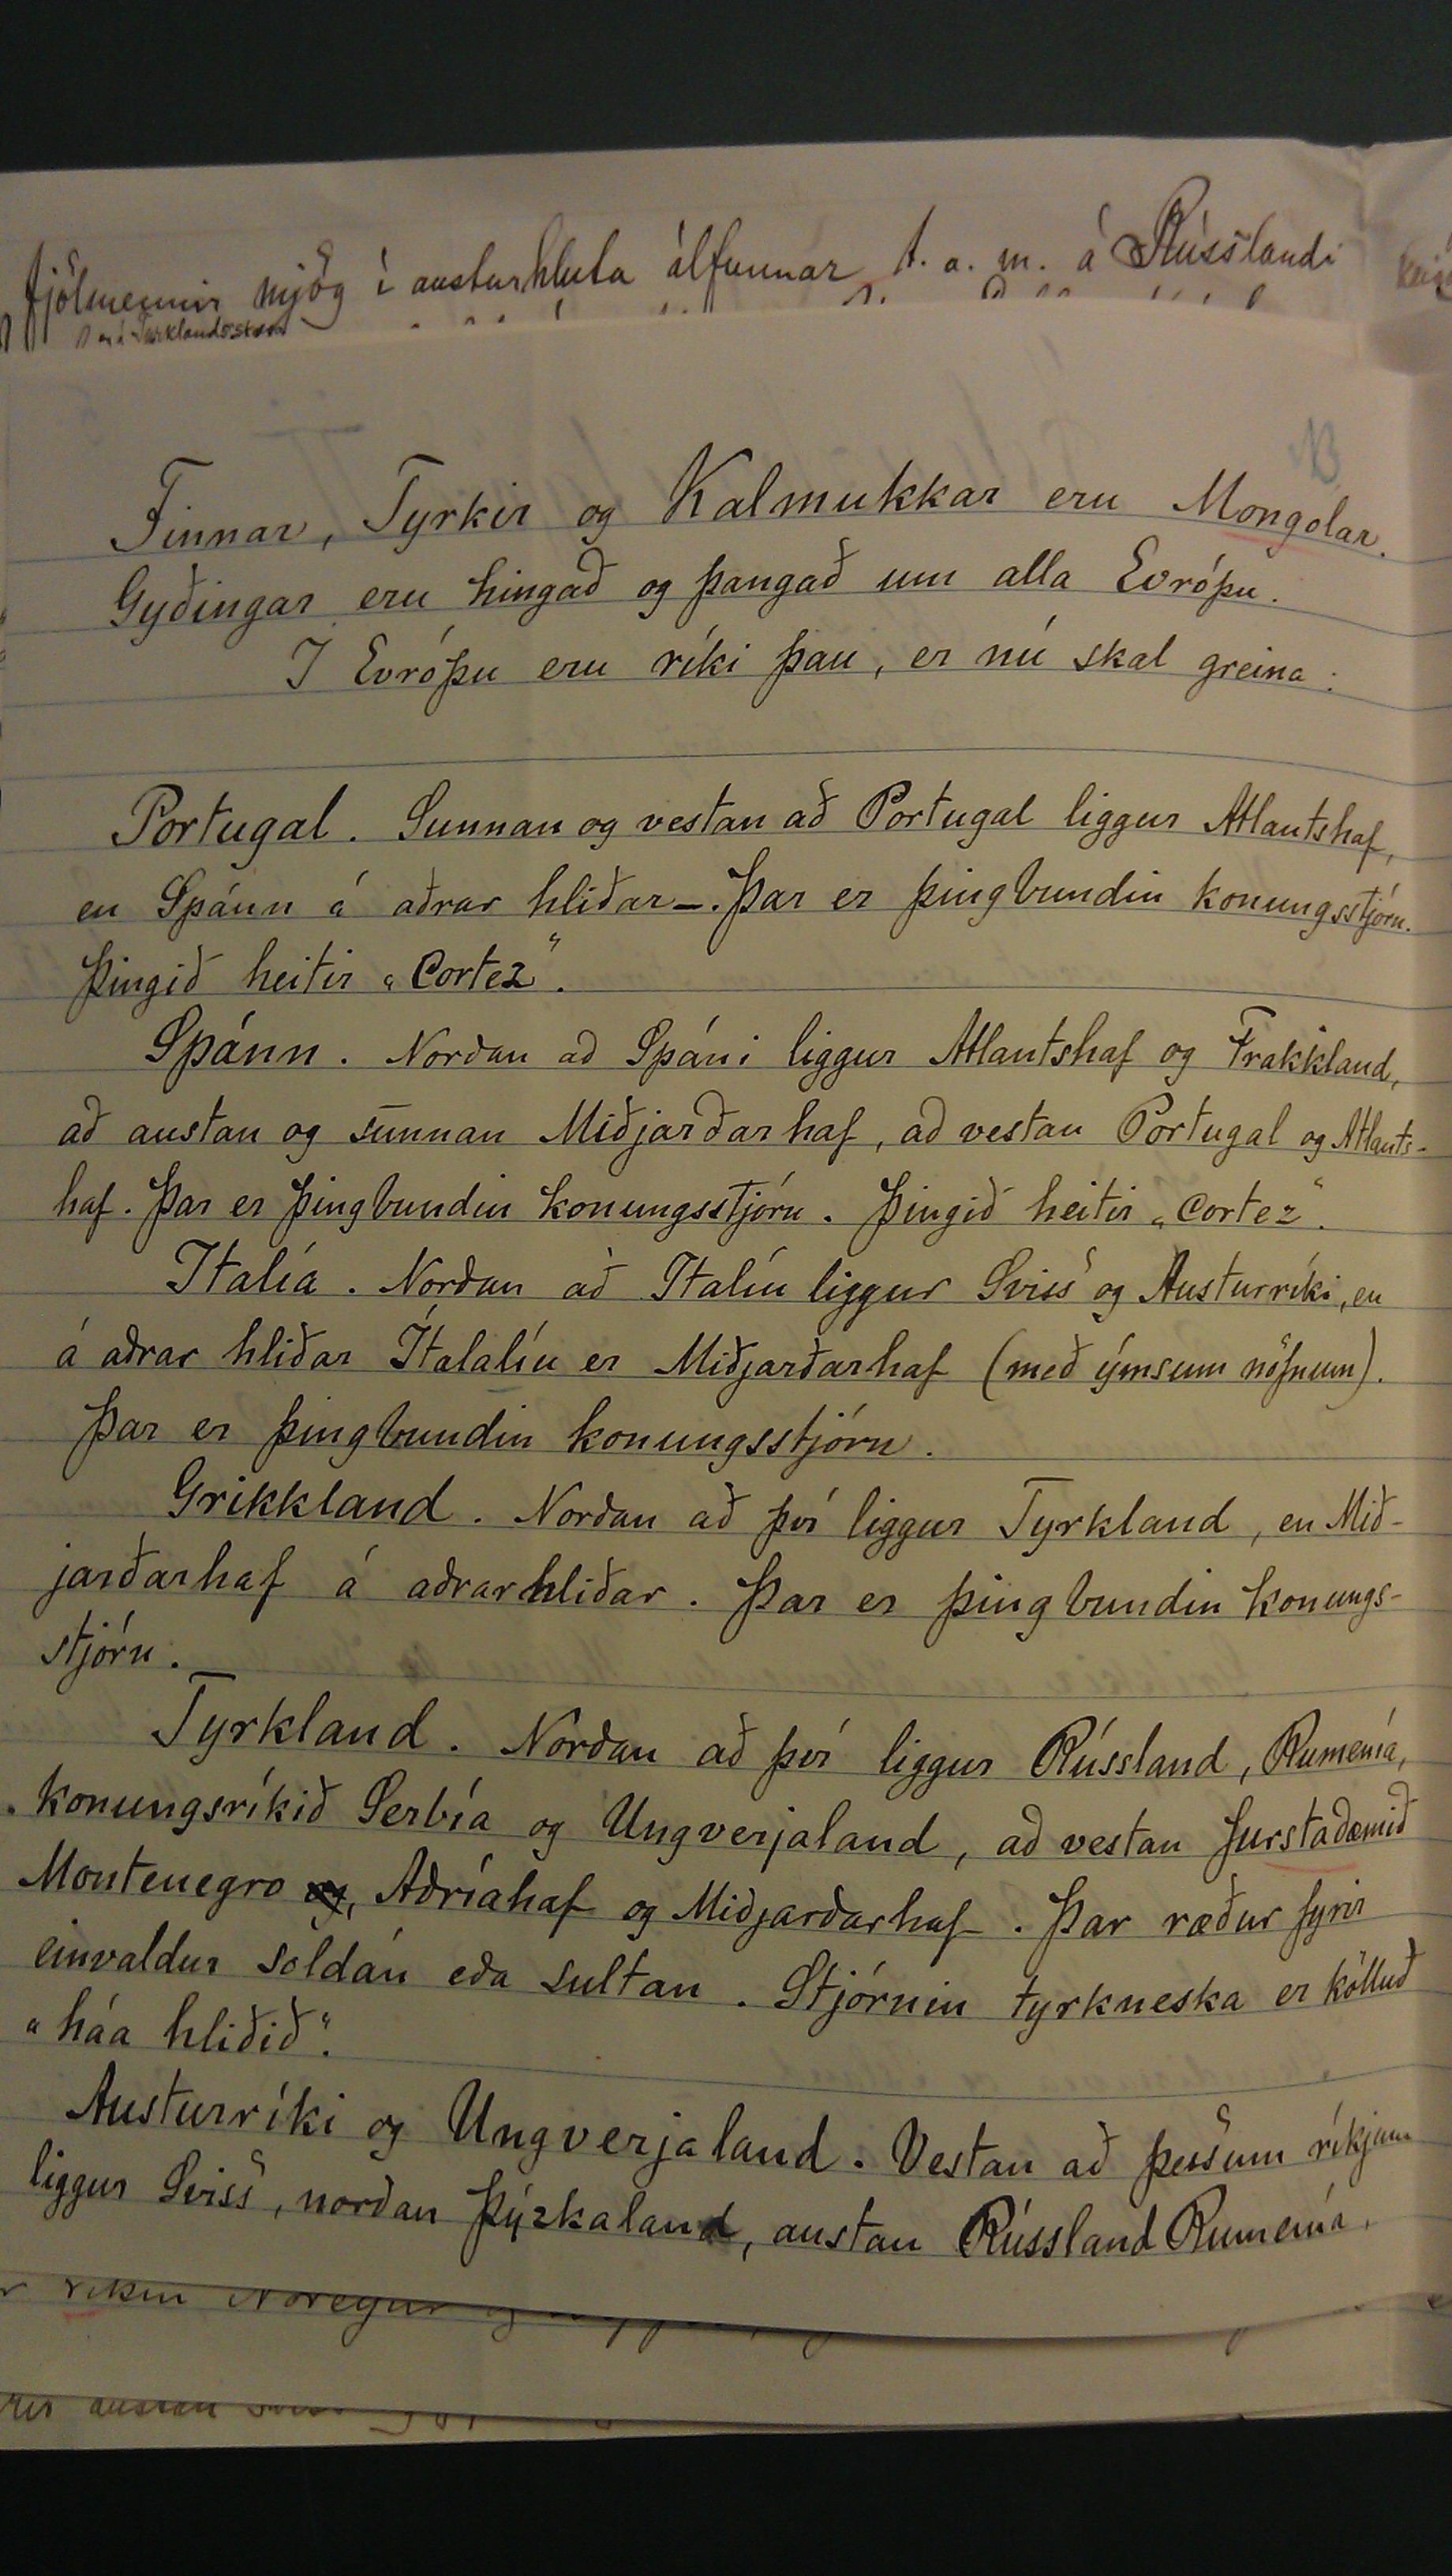 fjölmennir mjög í austurhluta álfunnar t. a. m. á Rússlandi
NB
Finnar, Tyrkir og Kalmukkar eru Mongolar.
Gyðingar eru hingað og þangað um alla Evrópu.
Í Evrópu eru ríki þau, er nú skal greina:
Portugal. Sunnan og vestan að Portugal liggur Atlantshaf,
en Spánn á aðrar hliðar–. Þar er þingbundin konungsstjórn.
Þingið heitir „Cortez“.
Spánn. Norðan að Spáni liggur Atlantshaf og Frakkland,
að austan og sunnan Miðjarðarhaf, að vestan Portugal og Atlants-
haf. Þar er þingbundin konungsstjórn. Þingið heitir „Cortez“.
Italía. Norðan að Italíu liggur Sviss og Austurríki, en
á aðrar hliðar Ítalalíu er Miðjarðarhaf (með ýmsum nöfnum).
Þar er þingbundin konungsstjórn.
Grikkland. Norðan að því liggur Tyrkland, en Mið-
jarðarhaf á aðrar hliðar. Þar er þingbundin konungs-
stjórn.
Tyrkland. Norðan að því liggur Rússland, Rumenía,
konungsríkið Serbía og Ungverjaland, að vestan furstadæmið
Montenegro og, Adríahaf og Miðjarðarhaf. Þar ræður fyrir
einvaldur soldán eða sultan. Stjórnin tyrkneska er kölluð
„háa hliðið“.
Austurríki og Ungverjaland. Vestan að þessum ríkjum
liggur Sviss, norðan Þýzkaland, austan Rússland Rumenía,
ríkin Noregur og
austan